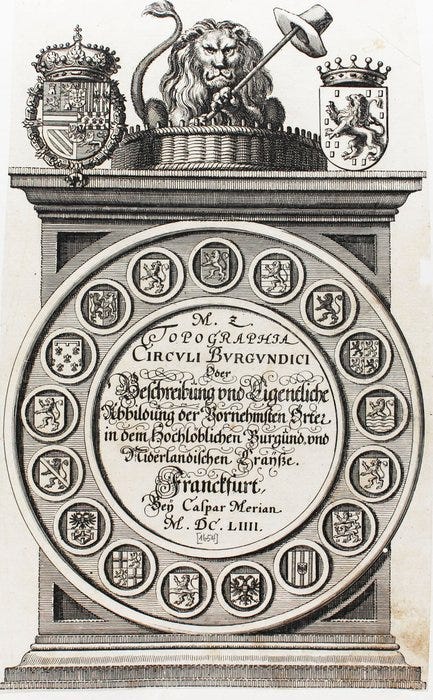 M. Z.
TOPOGRAPHIA
CIRCVLI BVRGVNDICI
Oder
Beschreibung vnd Eigentliche
Abbildung der Vornehmsten Örter
in dem Hochloblichen Burgund. vnd
Niderländischen Cräyße.
Franckfurt,
Bey Caspar Merian
M. DC. LIIII.
[1654]